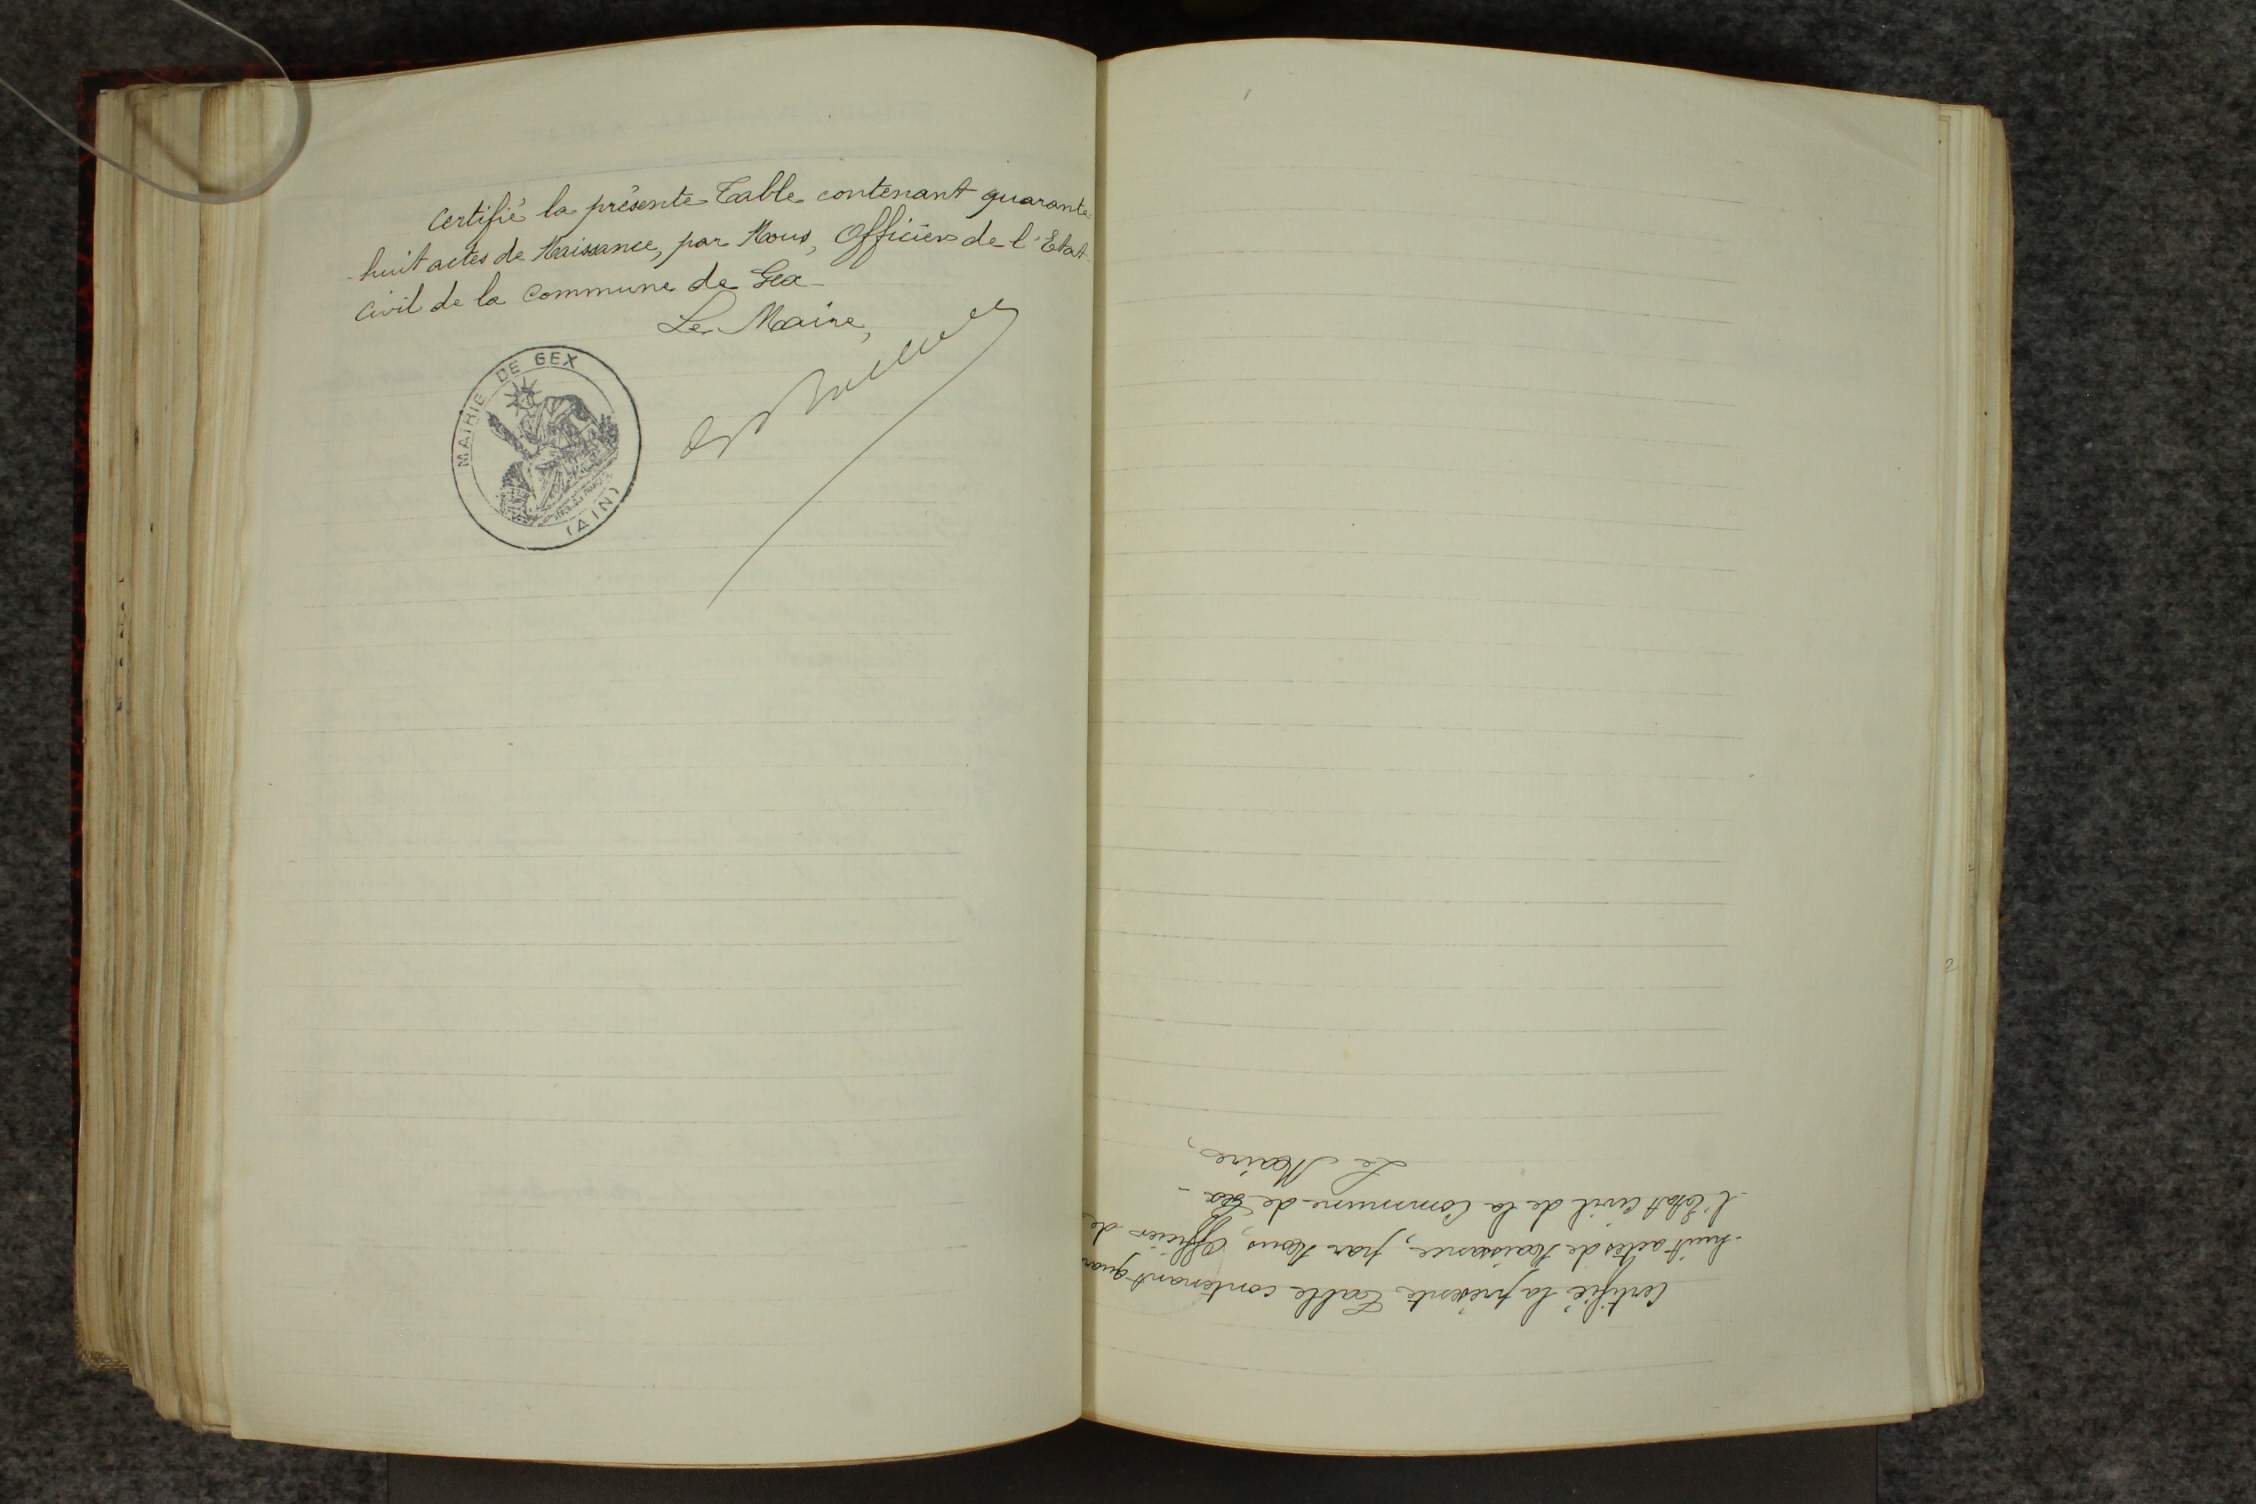 Certifié la présente Table contenant quarante-
-huit actes de Naissance, par Nous, Officier de l'Etat-
Civil de la Commune de Gex-
Le Maire,
MAIRIE DE GEX
(AIN)
Certifié la présente Table contenant quar
-huit actes de Naissance, par Nous, Officier de
l'Etat Civil de la Commune de Gex -
Le Maire,